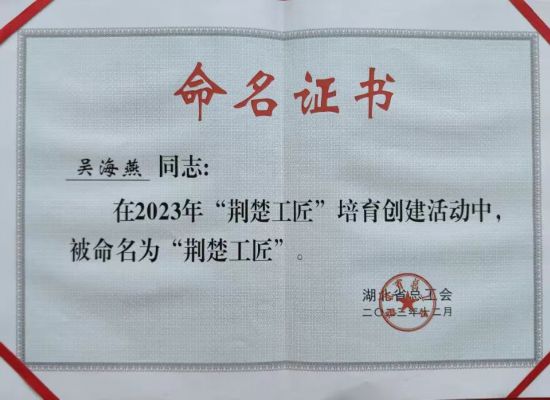 命名证书
吴海燕 同志:
在2023年“荆楚工匠”培育创建活动中,
被命名为“荆楚工匠”。
湖北省总工会
二〇二三年十二月